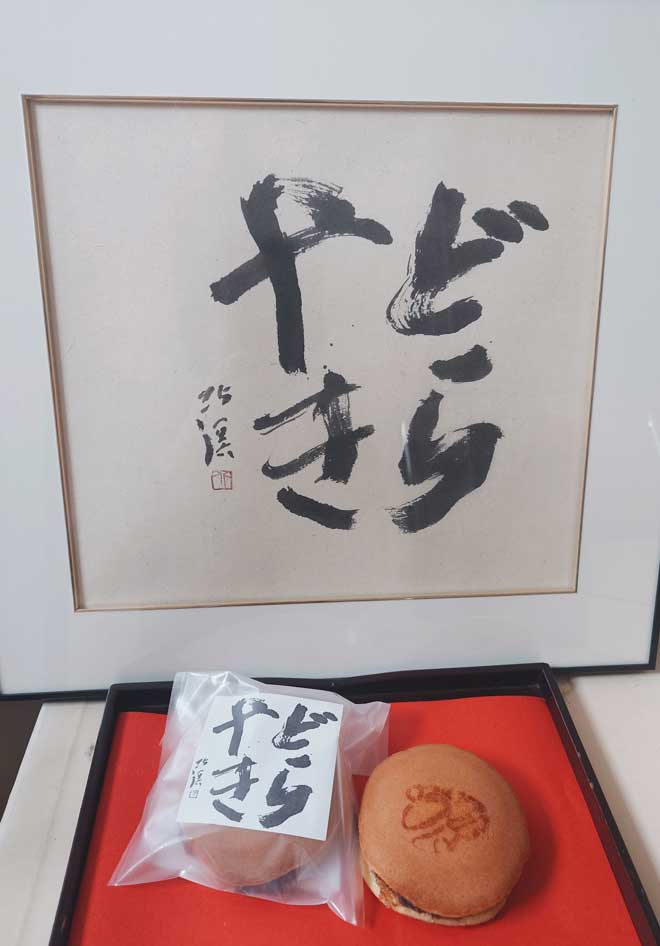 どら
やき
北渓
どら
やき
北渓